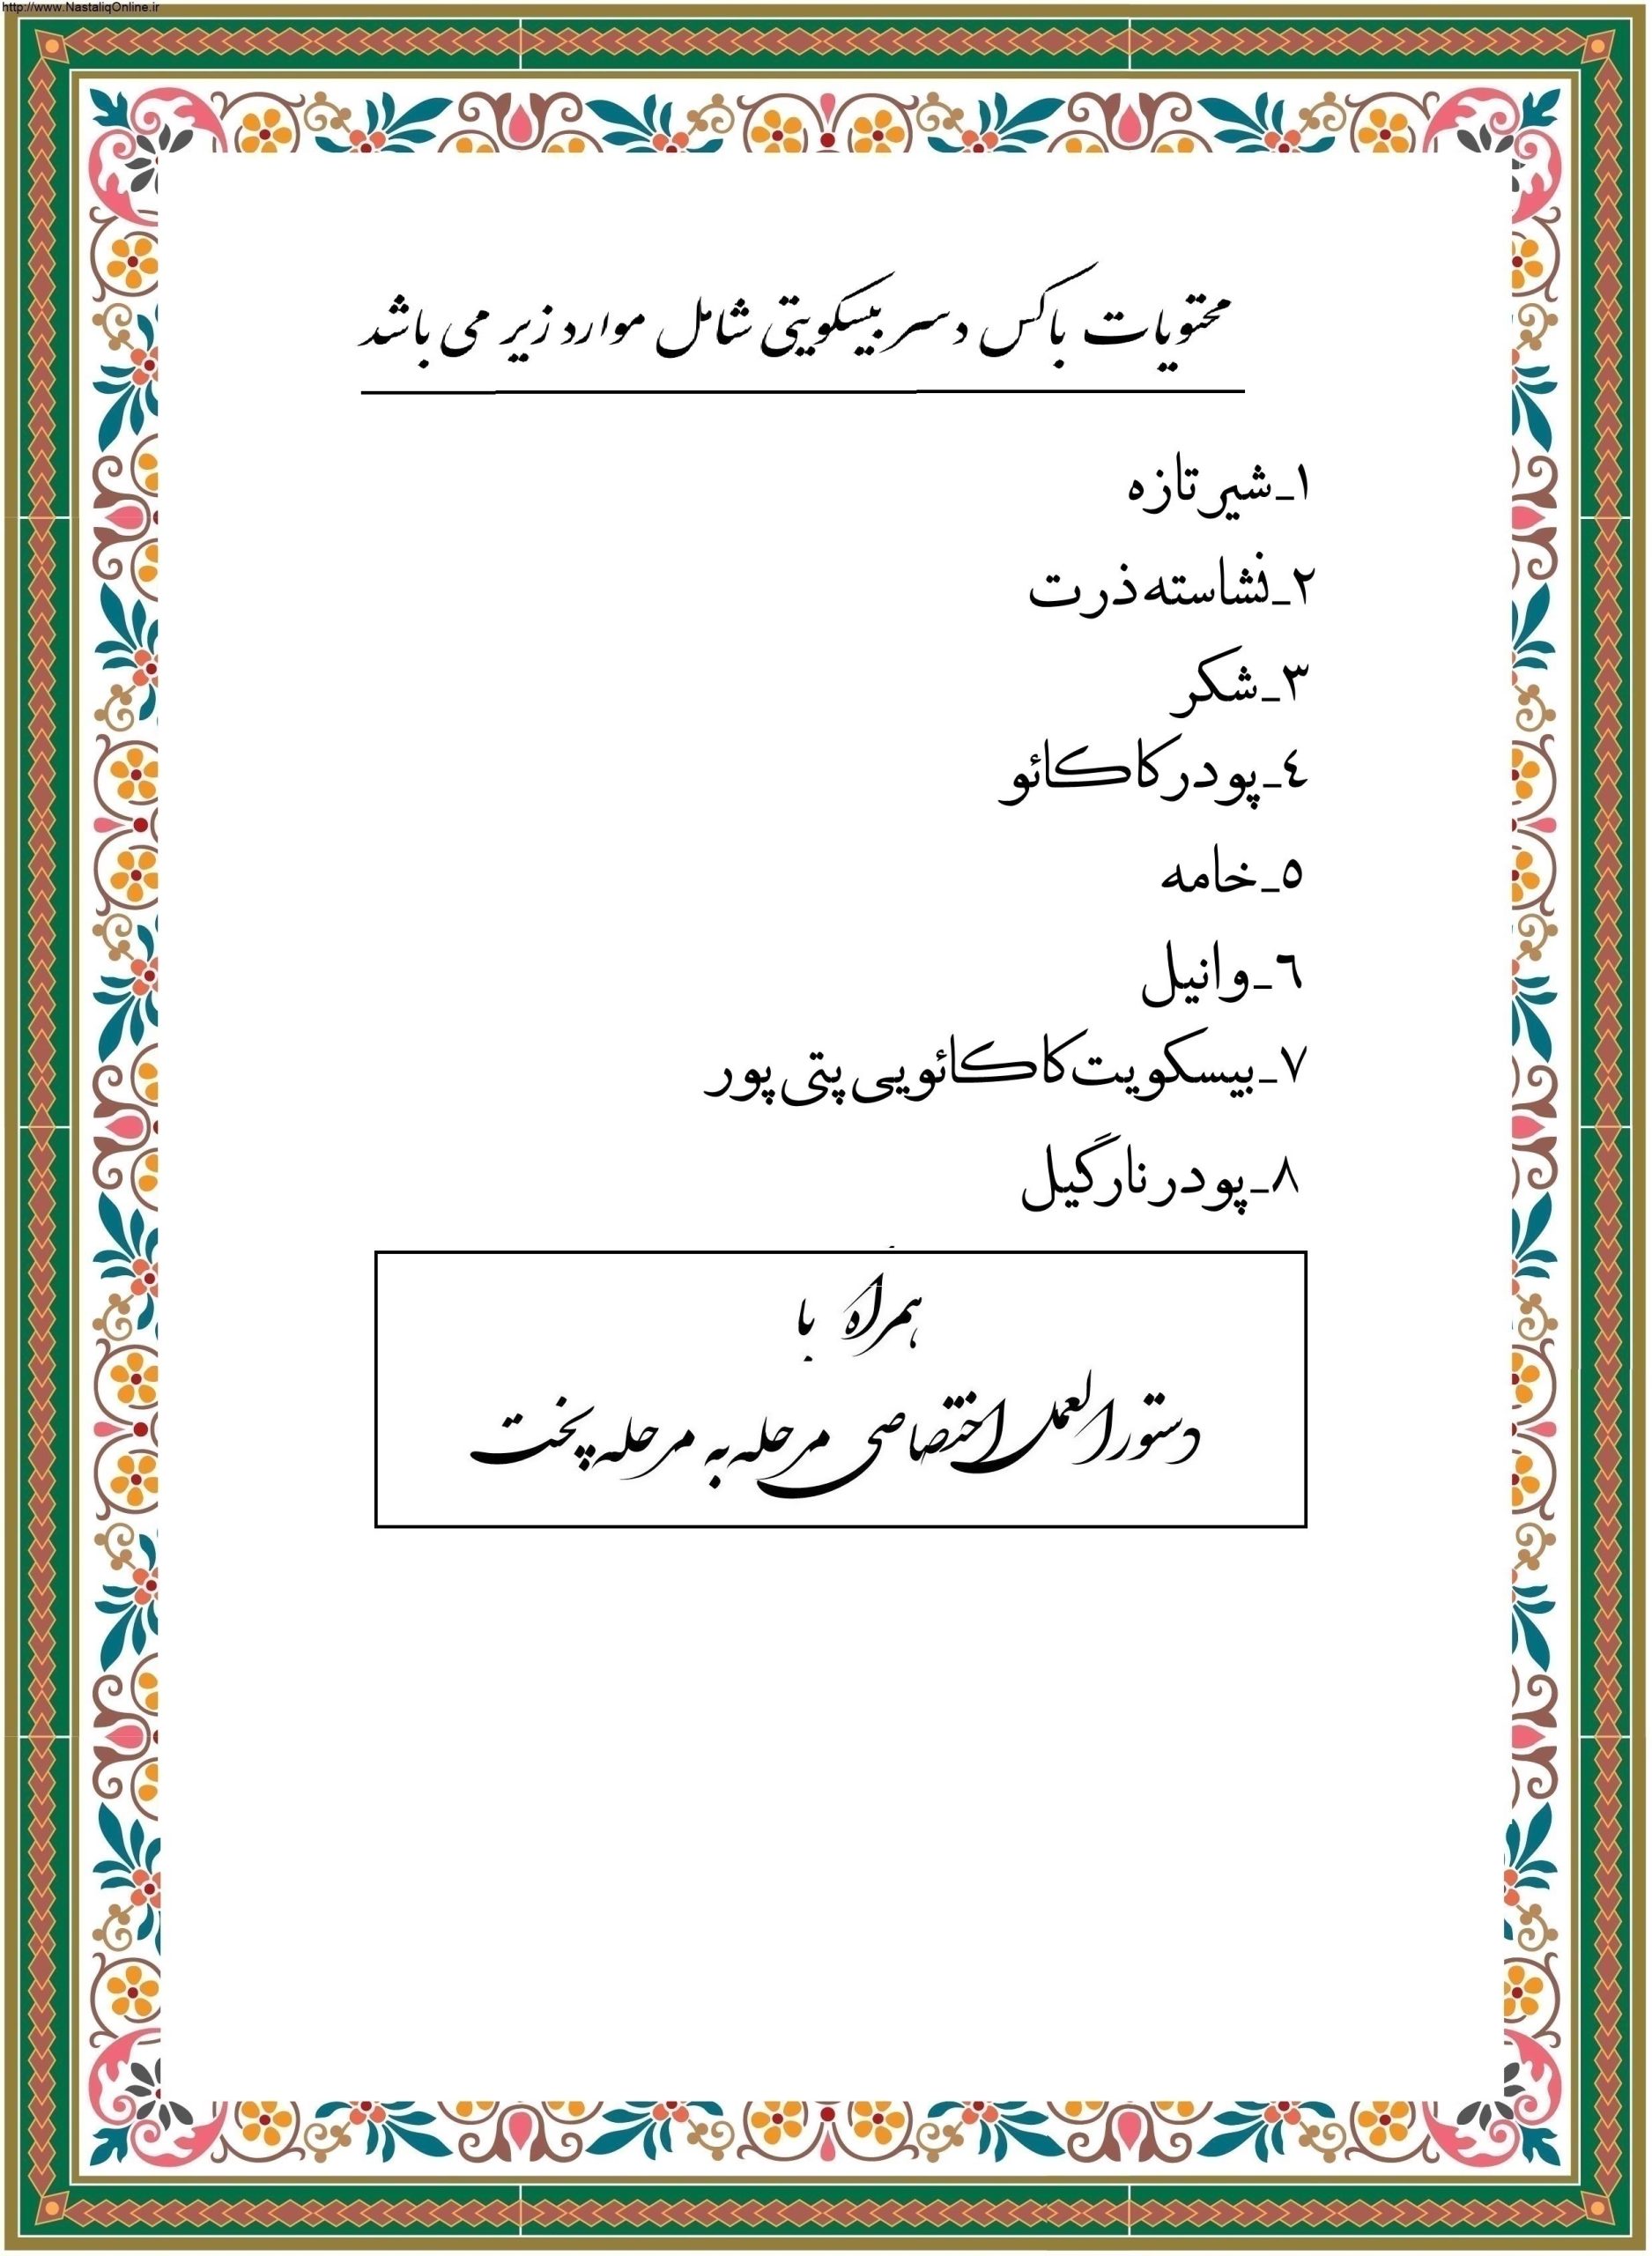 http://www.NastaliqOnline.ir
محتویات باکس دسر بیسکویتی شامل موارد زیر می باشد
١_شیر تازه
٢_نشاسته ذرت
٣_شکر
٤_پودر کاکائو
٥_خامه
٦_وانیل
٧_بیسکویت کاکائویی پتی پور
٨_پودر نارگیل
همراه با
دستورالعمل اختصاصی مرحله به مرحله پخت